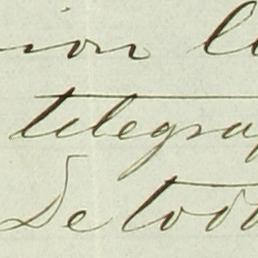 ion
telegra
De tod